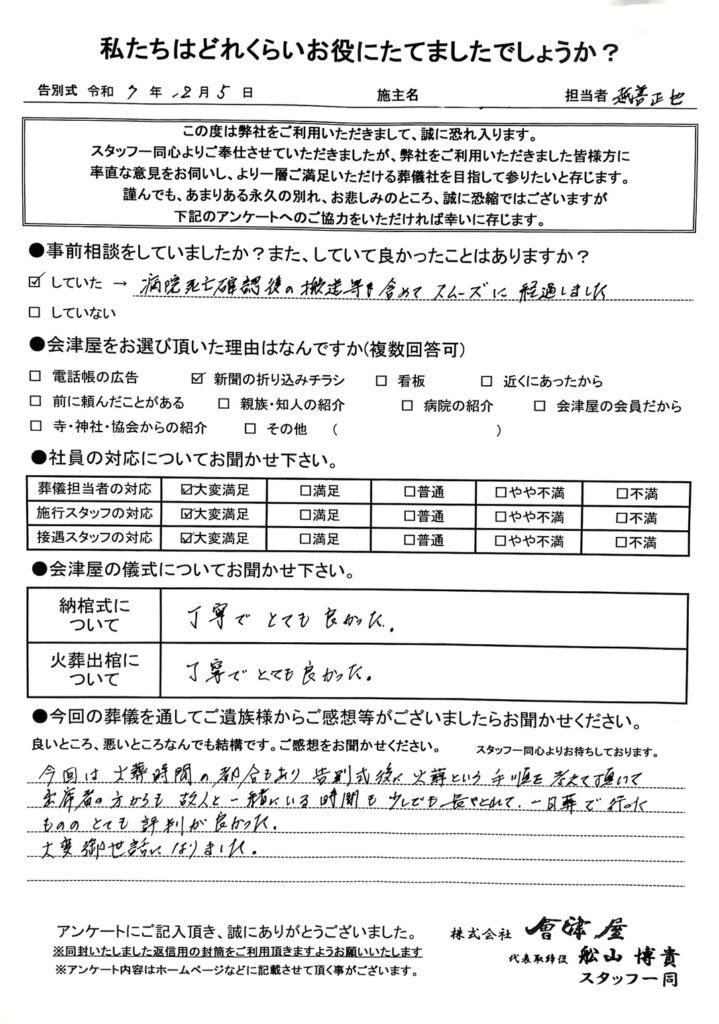 私たちはどれくらいお役にたてましたでしょうか？
告別式 令和 7 年 12月 5 日 施主名 担当者 延善正也
この度は弊社をご利用いただきまして、誠に恐れ入ります。
スタッフ一同心よりご奉仕させていただきましたが、弊社をご利用いただきました皆様方に
率直な意見をお伺いし、より一層ご満足いただける葬儀社を目指して参りたいと存じます。
謹んでも、あまりある永久の別れ、お悲しみのところ、誠に恐縮ではございますが
下記のアンケートへのご協力をいただければ幸いに存じます。
●事前相談をしていましたか？また、していて良かったことはありますか？
☑ していた → 病院死亡確認後の搬送等も含めてスムーズに経過しました
□ していない
●会津屋をお選び頂いた理由はなんですか(複数回答可)
□ 電話帳の広告 ☑ 新聞の折り込みチラシ □ 看板 □ 近くにあったから
□ 前に頼んだことがある □ 親族・知人の紹介 □ 病院の紹介 □ 会津屋の会員だから
□ 寺・神社・協会からの紹介 □ その他 （ ）
●社員の対応についてお聞かせ下さい。
葬儀担当者の対応 ☑大変満足 □満足 □普通 □やや不満 □不満
施行スタッフの対応 ☑大変満足 □満足 □普通 □やや不満 □不満
接遇スタッフの対応 ☑大変満足 □満足 □普通 □やや不満 □不満
●会津屋の儀式についてお聞かせ下さい。
納棺式に
ついて
丁寧でとても良かった。
火葬出棺に
ついて
丁寧でとても良かった。
●今回の葬儀を通してご遺族様からご感想等がございましたらお聞かせください。
良いところ、悪いところなんでも結構です。ご感想をお聞かせください。 スタッフ一同心よりお待ちしております。
今回は火葬時間の都合もあり告別式後に火葬という手順を考えて頂いて
出席者の方からも故人と一緒にいる時間も少しでも長くとれて、一日葬で行った
もののとても評判が良かった。
大変御世話になりました。
アンケートにご記入頂き、誠にありがとうございました。
※同封いたしました返信用の封筒をご利用頂きますようお願いいたします
※アンケート内容はホームページなどに記載させて頂く事がございます。
株式会社 會津屋
代表取締役 舩山 博貴
スタッフ一同